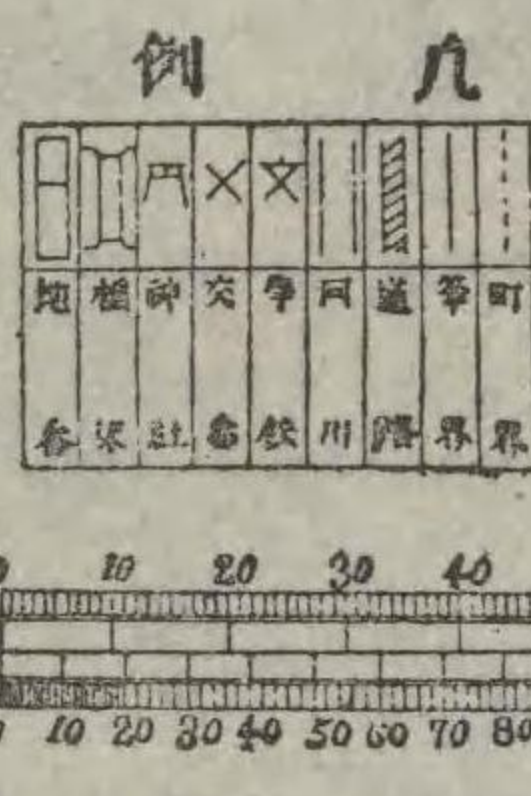 凡例
町界
筆界
道路
河川
學校
交番
神社
橋梁
地番
0 10 20 30 40
0 10 20 30 40 50 60 70 80